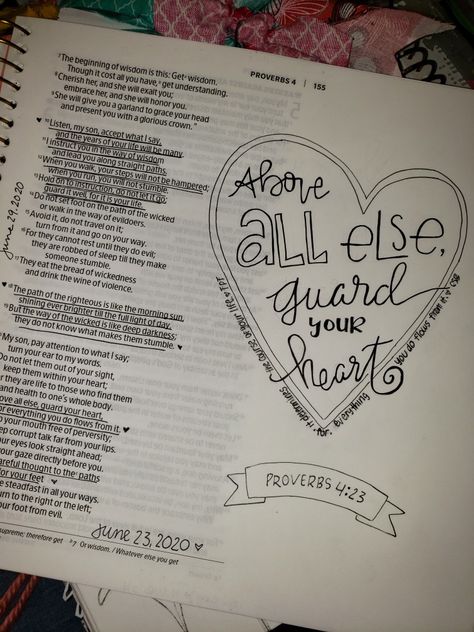 PROVERBS 4 | 155
⁷The beginning of wisdom is this: Get wisdom.
Though it cost all you have, get understanding.
⁸Cherish her, and she will exalt you;
embrace her, and she will honor you.
⁹She will give you a garland to grace your head
and present you with a glorious crown."
¹⁰Listen, my son, accept what I say,
and the years of your life will be many.
¹¹I instruct you in the way of wisdom
and lead you along straight paths.
¹²When you walk, your steps will not be hampered;
when you run, you will not stumble.
¹³Hold on to instruction, do not let it go;
guard it well, for it is your life.
¹⁴Do not set foot on the path of the wicked
or walk in the way of evildoers.
¹⁵Avoid it, do not travel on it;
turn from it and go on your way.
¹⁶For they cannot rest until they do evil;
they are robbed of sleep till they make
someone stumble.
¹⁷They eat the bread of wickedness
and drink the wine of violence.
¹⁸The path of the righteous is like the morning sun,
shining ever brighter till the full light of day.
¹⁹But the way of the wicked is like deep darkness;
they do not know what makes them stumble.
My son, pay attention to what I say;
turn your ear to my words.
Do not let them out of your sight,
keep them within your heart;
they are life to those who find them
and health to one's whole body.
all else, guard your heart,
everything you do flows from it.
your mouth free of perversity;
corrupt talk far from your lips.
your eyes look straight ahead;
your gaze directly before you.
careful thought to the paths
for your feet
be steadfast in all your ways.
turn to the right or the left;
your foot from evil.
supreme; therefore get ᵇ7 Or wisdom. / Whatever else you get
June 29, 2020
June 23, 2020
Above
ALL ELSE,
guard
YOUR
heart
it determines the course of your life. TPT
for everything you do flows from it. CSB
PROVERBS 4:23